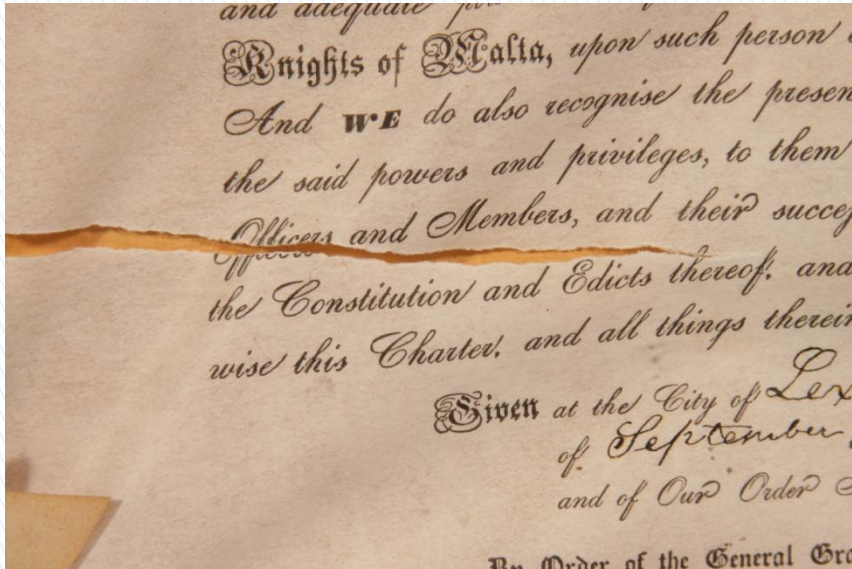 and adequate
Knights of Malta, upon such person
And WE do also recognise the presen
the said powers and privileges, to them
Officers and Members, and their succes
the Constitution and Edicts thereof, and
wise this Charter, and all things therein
Given at the City of Lex
of September
and of Our Order
By Order of the General Gra